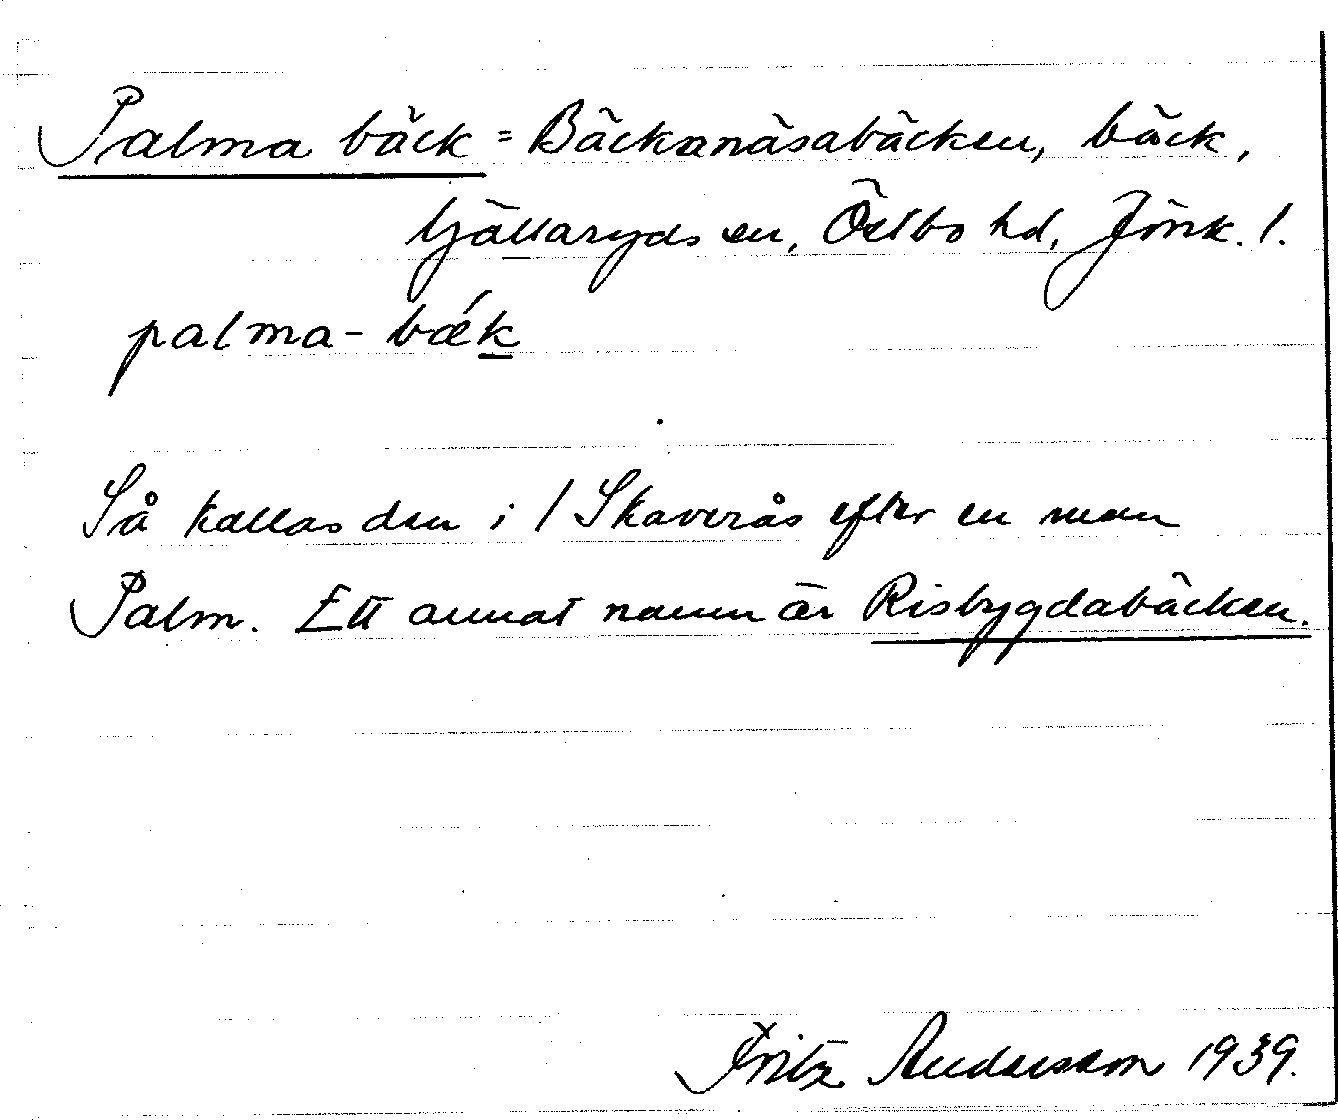 Palma bäck = Bäckanäsabäcken, bäck,
Gällaryds sn, Östbo hd, Jönk. l.
palma-bǽk
Så kallas den i / Skaverås efter en man
Palm. Ett annat namn är Risbygdabäcken.
Fritz Andersson 1939.